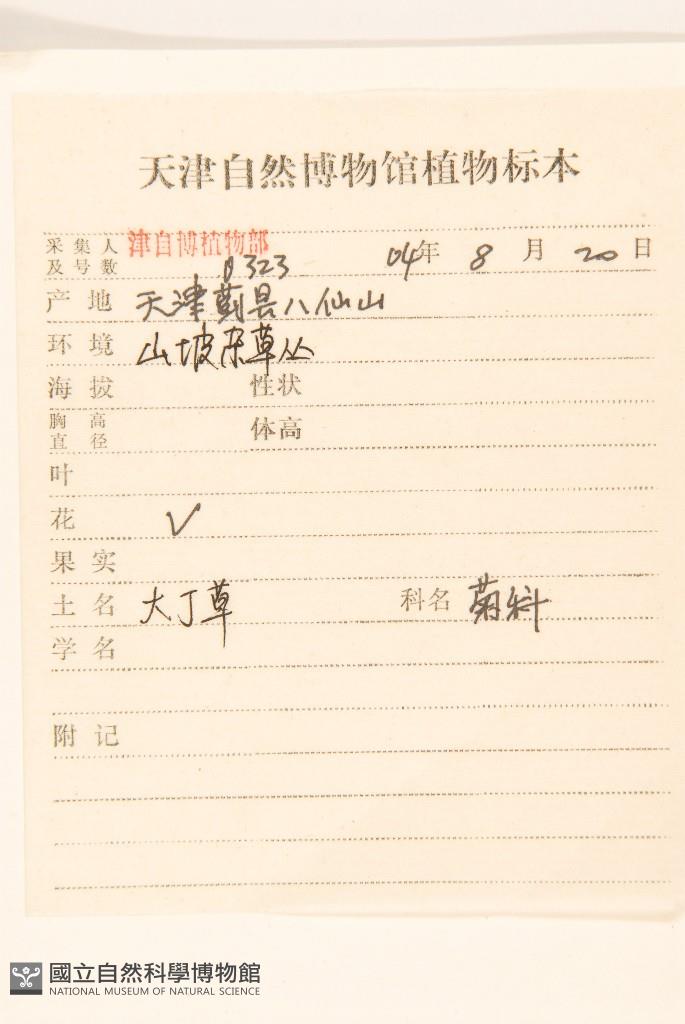 天津自然博物馆植物标本
采集人 津自博植物部
及号数 323 04年 8月 20日
产地 天津蓟县八仙山
环境 山坡杂草丛
海拔 性状
胸高
直径 体高
叶
花 V
果实
土名 大丁草 科名 菊科
学名
附记
國立自然科學博物館
NATIONAL MUSEUM OF NATURAL SCIENCE